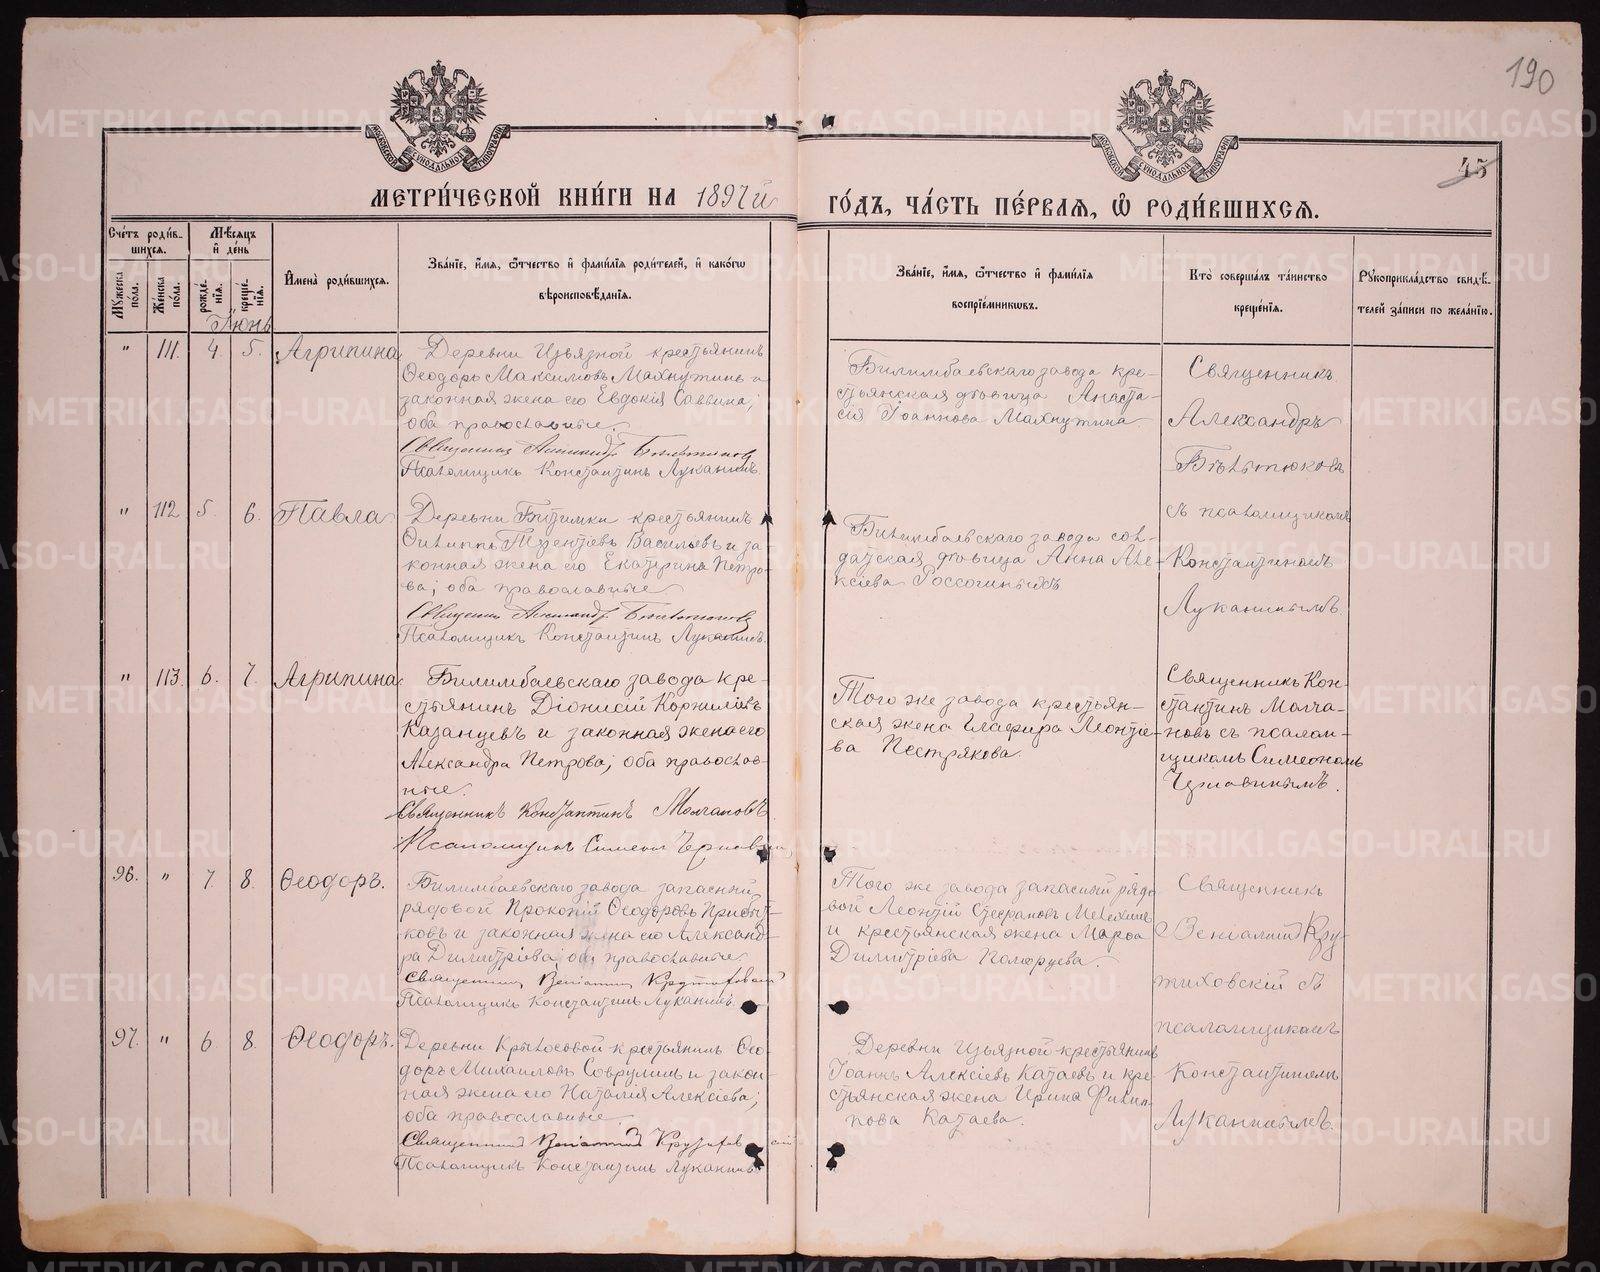 190
45
МЕТРИ́ЧЕСКОЙ КНИ́ГИ НА 1897й ГО́ДЪ, ЧА́СТЬ ПЕ́РВАЯ, Ѽ РОДИ́ВШИХСЯ.
Сче́тъ роди́вшихся.
Мужеска по́ла.
Же́нска по́ла.
Мѣ́сяцъ и҆ де́нь
рожде́нїя.
креще́нїя.
Іюнь
И҆мена̀ роди́вшихся.
Зва́нїе, и҆́мя, ѻ҆́тчество и҆ фами́лїя роди́телей, и҆ како́гѡ
вѣроисповѣ́данїя.
Зва́нїе, и҆́мя, ѻ҆́тчество и҆ фами́лїя
воспрїе́мниковъ.
Кто̀ соверша́лъ та́инство
креще́нїя.
Рукоприкла́дство свидѣ́-
телей за́писи по жела́нїю.
" 111. 4. 5. Агрипина
Деревни Извязной крестьянинъ
Ѳеодоръ Максимовъ Махнутинъ и
законная жена его Евдокія Саввина;
оба православные.
Священникъ Александръ
Псаломщикъ Константинъ Луканинъ.
Билимбаевскаго завода кре-
стьянская дѣвица Анаста-
сія Іоаннова Махнутина
Священникъ
Александръ
съ псаломщикомъ
Константиномъ
Луканинымъ.
" 112 5. 6. Павла
Деревни Битимки крестьянинъ
Филиппъ Терентіевъ Васильевъ и за
конная жена его Екатерина Петро-
ва; оба православные
Священникъ Александръ
Псаломщикъ Константинъ Луканинъ.
Билимбаевскаго завода сол-
датская дѣвица Анна Але-
ксіева
" 113. 6. 7. Агрипина
Билимбаевскаго завода кре-
стьянинъ Діонисій Корниліевъ
Казанцевъ и законная жена его
Александра Петрова; оба православ-
ные.
Священникъ Константинъ Молчановъ
Псаломщикъ Симеонъ
Того же завода крестьян-
ская жена Глафира Леонтіе-
ва Пестрякова.
Священникъ Кон-
стантинъ Молча-
новъ съ псалом-
щикомъ Симеономъ
96. " 7. 8. Ѳеодоръ.
Билимбаевскаго завода запасный
рядовой Прокопій Ѳеодоровъ Прибыт-
ковъ и законная жена его Александ-
ра Димитріева; оба православные
Священникъ Веніаминъ
Псаломщикъ Константинъ Луканинъ.
Того же завода запасный рядо
вой Леонтій Стефановъ Мелехинъ
и крестьянская жена Марѳа
Димитріева
Священникъ
Веніаминъ Кру-
тиховскій съ
псаломщикомъ
Константиномъ
Луканинымъ.
97. " 6. 8. Ѳеодоръ.
Деревни Крылосовой крестьянинъ Ѳео-
доръ Михаиловъ Соврулинъ и закон-
ная жена его Наталія Алексіева;
оба православные.
Священникъ Веніаминъ
Псаломщикъ Константинъ Луканинъ.
Деревни Извязной крестьянинъ
Іоаннъ Алексіевъ Катаевъ и кре-
стьянская жена Ирина Филип-
пова Катаева.